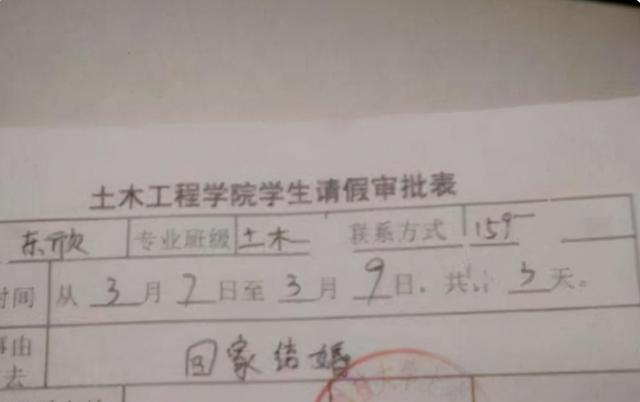 土木工程学院学生请假审批表
东欣 专业班级 土木 联系方式 159
时间 从 3 月 7 日至 3 月 9 日,共计 3 天。
事由 回家结婚
去